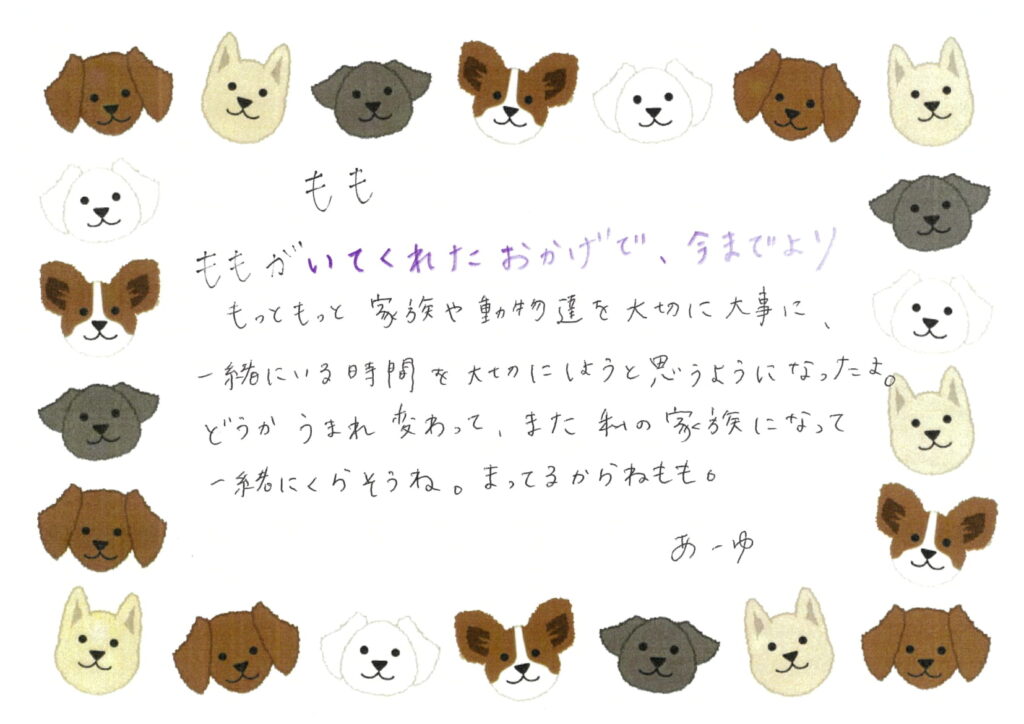 もも
ももがいてくれたおかげで、今までより
もっともっと家族や動物達を大切に大事に、
一緒にいる時間を大切にしようと思うようになったよ。
どうかうまれ変わって、また私の家族になって
一緒にくらそうね。まってるからねもも。
あーゆ